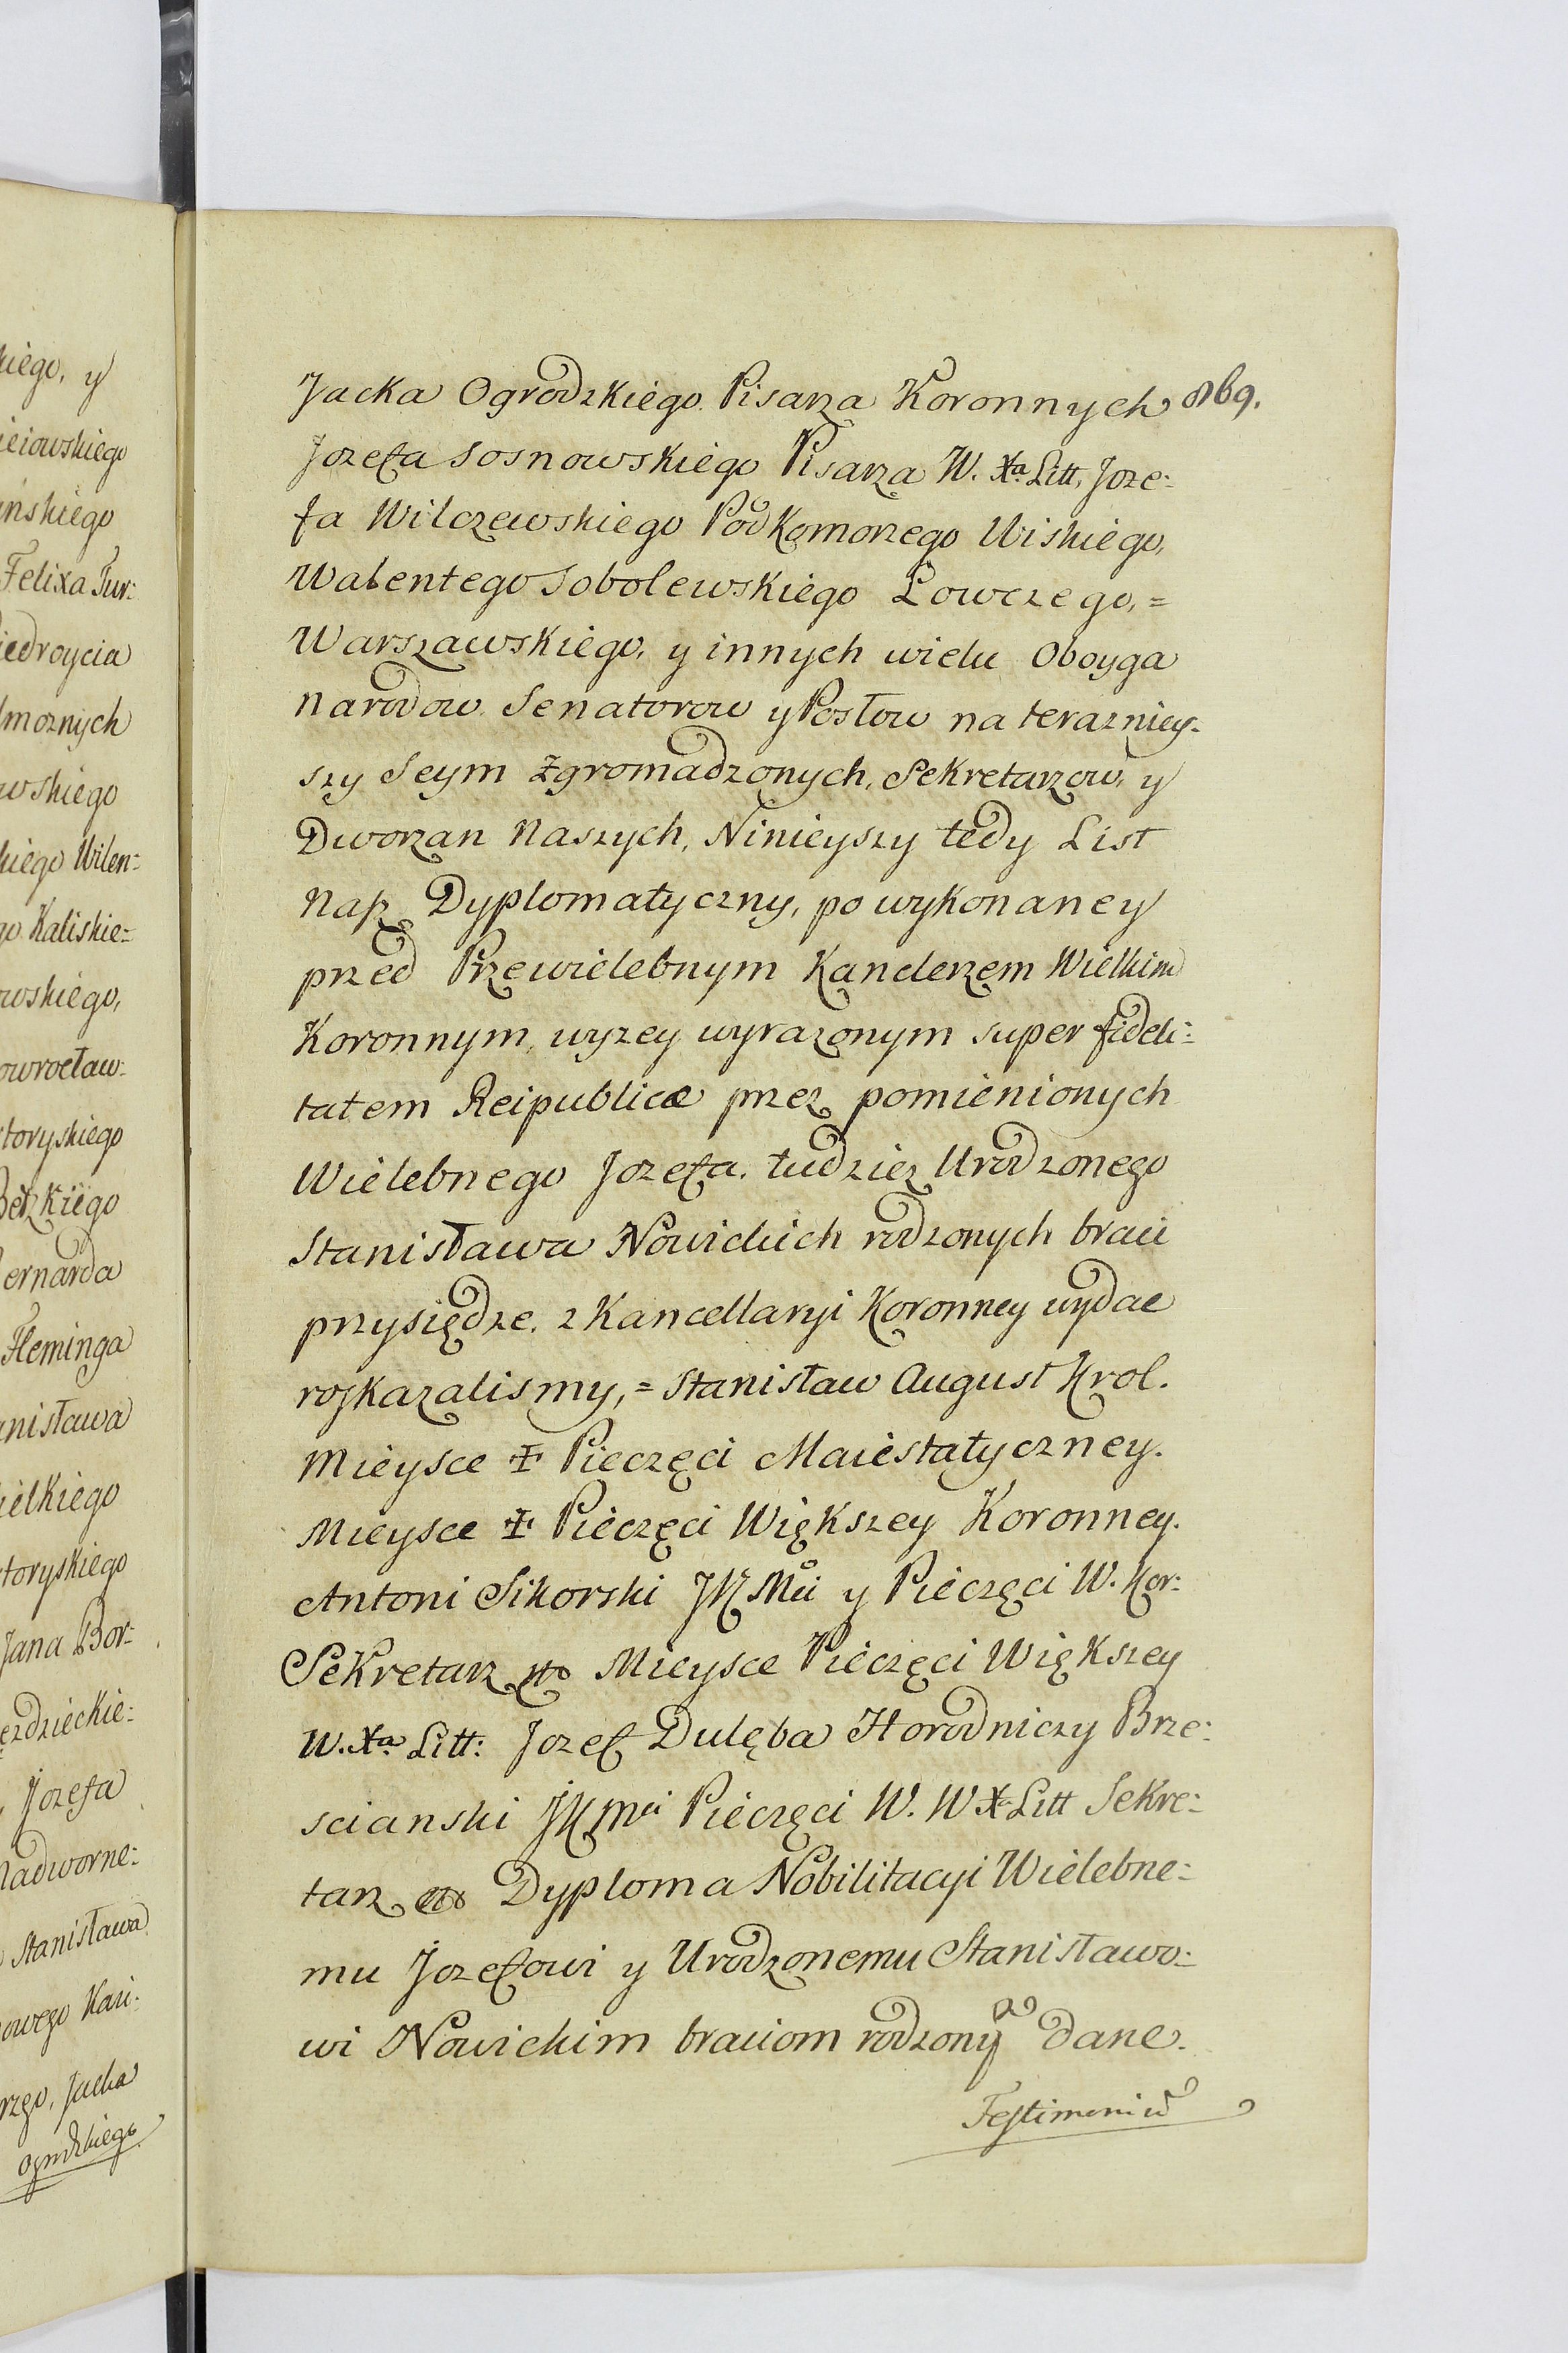 kiego, y
ieiowskiego
inskiego
Felixa Tur:
iedroycia
możnych
wskiego
kiego Wilen:
go Kaliskie:
owskiego,
owrocław:
toryskiego
Bełzkiego
Bernarda
Fleminga
anisława
ielkiego
toryskiego
Jana Bor:
ezdzieckie:
Jozefa
Nadworne:
Stanisława
owego Kari:
rzgo, Jacka
Ogrodzkiego
869.
Jacka Ogrodzkiego Pisarza Koronnych
Jozefa Sosnowskiego Pisarza W. Xa. Litt, Joze:
fa Wilczewskiego Podkomorzego Wiskiego,
Walentego Sobolewskiego Łowczego,=
Warszawskiego, y innych wielu Oboyga
Narodow Senatorow y Posłow na terazniey-
szy Seym Zgromadzonych, Sekretarzow, y
Dworzan Naszych, Ninieyszy tedy List
Nasz Dyplomatyczny, po wykonaney
przed Przewielebnym Kanclerzem Wielkim
Koronnym wyzey wyrazonym super fideli:
tatem Reipublicæ przez pomienionych
Wielebnego Jozefa, tudziez Urodzonego
Stanisława Nowickich rodzonych braci
przysiędze, z Kancellaryi Koronney wydac
roskazalismy,= Stanisław August Krol.
Mieysce ✠ Pieczęci Maiestatyczney.
Mieysce ✠ Pieczęci Większey Koronney.
Antoni Sikorski JK Mci y Pieczęci W. Kor:
Sekretarz mp Mieysce Pieczęci Większey
W. Xa. Litt: Jozef Dulęba Horodniczy Brze:
scianski JK Mci Pieczęci W. W X Litt Sekre:
tarz mp Dyploma Nobilitacyi Wielebne:
mu Jozefowi y Urodzonemu Stanisławo:
wi Nowickim braciom rodzony dane.
Testimoniū